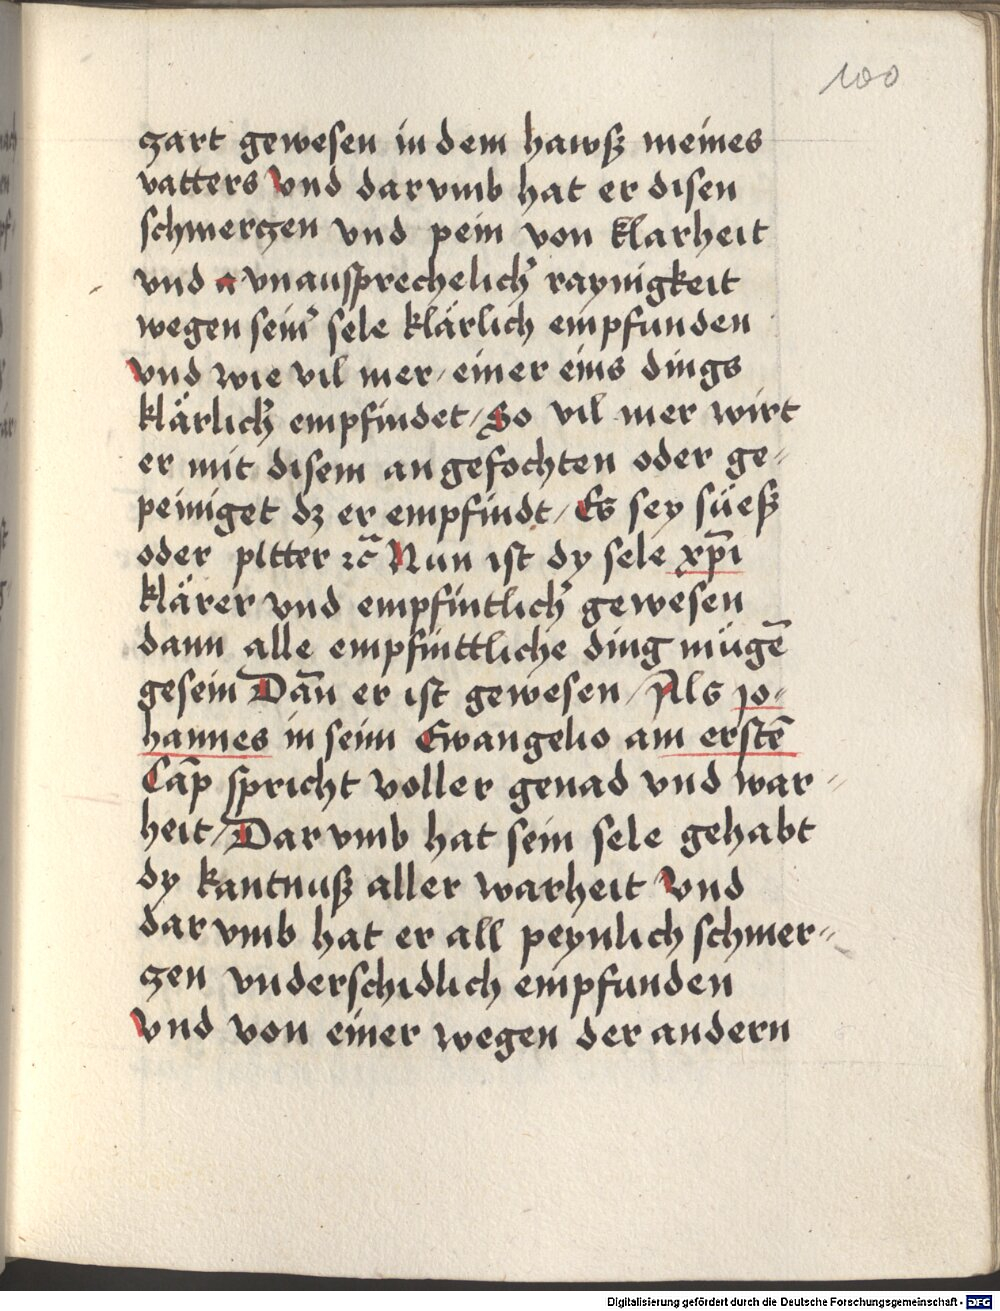 100
zart gewesen in dem hawß meines
vatters Vnd dar vmb hat er disen
schmerczen vnd pein von klarheit
vnd vnaussprechelich&#x27; raynigkeit
wegen sein&#x27; sele klärlich empfunden
Vnd wie vil mer / einer eins dings
klärlich&#x27; empfindet / So vil mer wirt
er mit disem angefochten oder ge=
peiniget dz er empfindt / Es sey süeß
oder pitter ꝛc̃ Nun ist dy sele xp̄i
klärer vnd empfintlich&#x27; gewesen
dann alle empfinttliche ding mügē
gesein Dan̄ er ist gewesen / Als jo=
hannes in seim Ewangelio am erstē
Cap̄ spricht voller genad vnd war=
heit / Dar vmb hat sein sele gehabt
dy kantnuß aller warheit Vnd
dar vmb hat er all peynlich schmer=
zen vnderschidlich empfunden
Vnd von einer wegen der andern
Digitalisierung gefördert durch die Deutsche Forschungsgemeinschaft - DFG